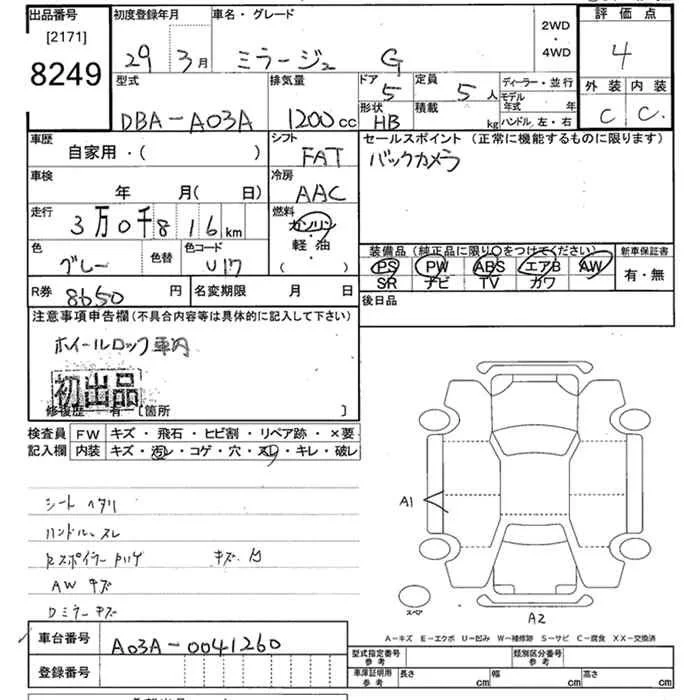 出品番号 初度登録年月 車名・グレード 2WD・4WD 評価点
[2171]
8249 29 3月 ミラージュ G 4
型式 排気量 ドア 定員 ディーラー・並行 外装 内装
DBA-A03A 1200cc 5 5人 モデル年式 年 C C
形状 HB 積載 kg ハンドル 左・右
車歴 シフト セールスポイント (正常に機能するものに限ります)
自家用・( ) FAT バックカメラ
車検 冷房
年 月( 日) AAC
走行 燃料
3万0千816km ガソリン・軽油・( )
色 色替 色コード 装備品(純正品に限り○をつけてください) 新車保証書
グレー U17 PS PW ABS エアB AW 有・無
SR ナビ TV カワ
R券 8650円 名変期限 月 日 後日品
注意事項申告欄(不具合内容等は具体的に記入して下さい)
ホイールロック車内
初出品
修復歴 有 [箇所 ]
検査員 FW キズ・飛石・ヒビ割・リペア跡・×要
記入欄 内装 キズ・汚レ・コゲ・穴・スレ・キレ・破レ
シート ヘタリ
ハンドル スレ
Rスポイラー ハゲ キズ
AW キズ
Dミラー キズ
A1
スペア
A2
A-キズ E-エクボ U-凹み W-補修跡 S-サビ C-腐食 XX-交換済
車台番号 A03A-0041260
登録番号
型式指定番号 参考 類別区分番号 参考
車庫証明用 参考 長さ cm 幅 cm 高さ cm